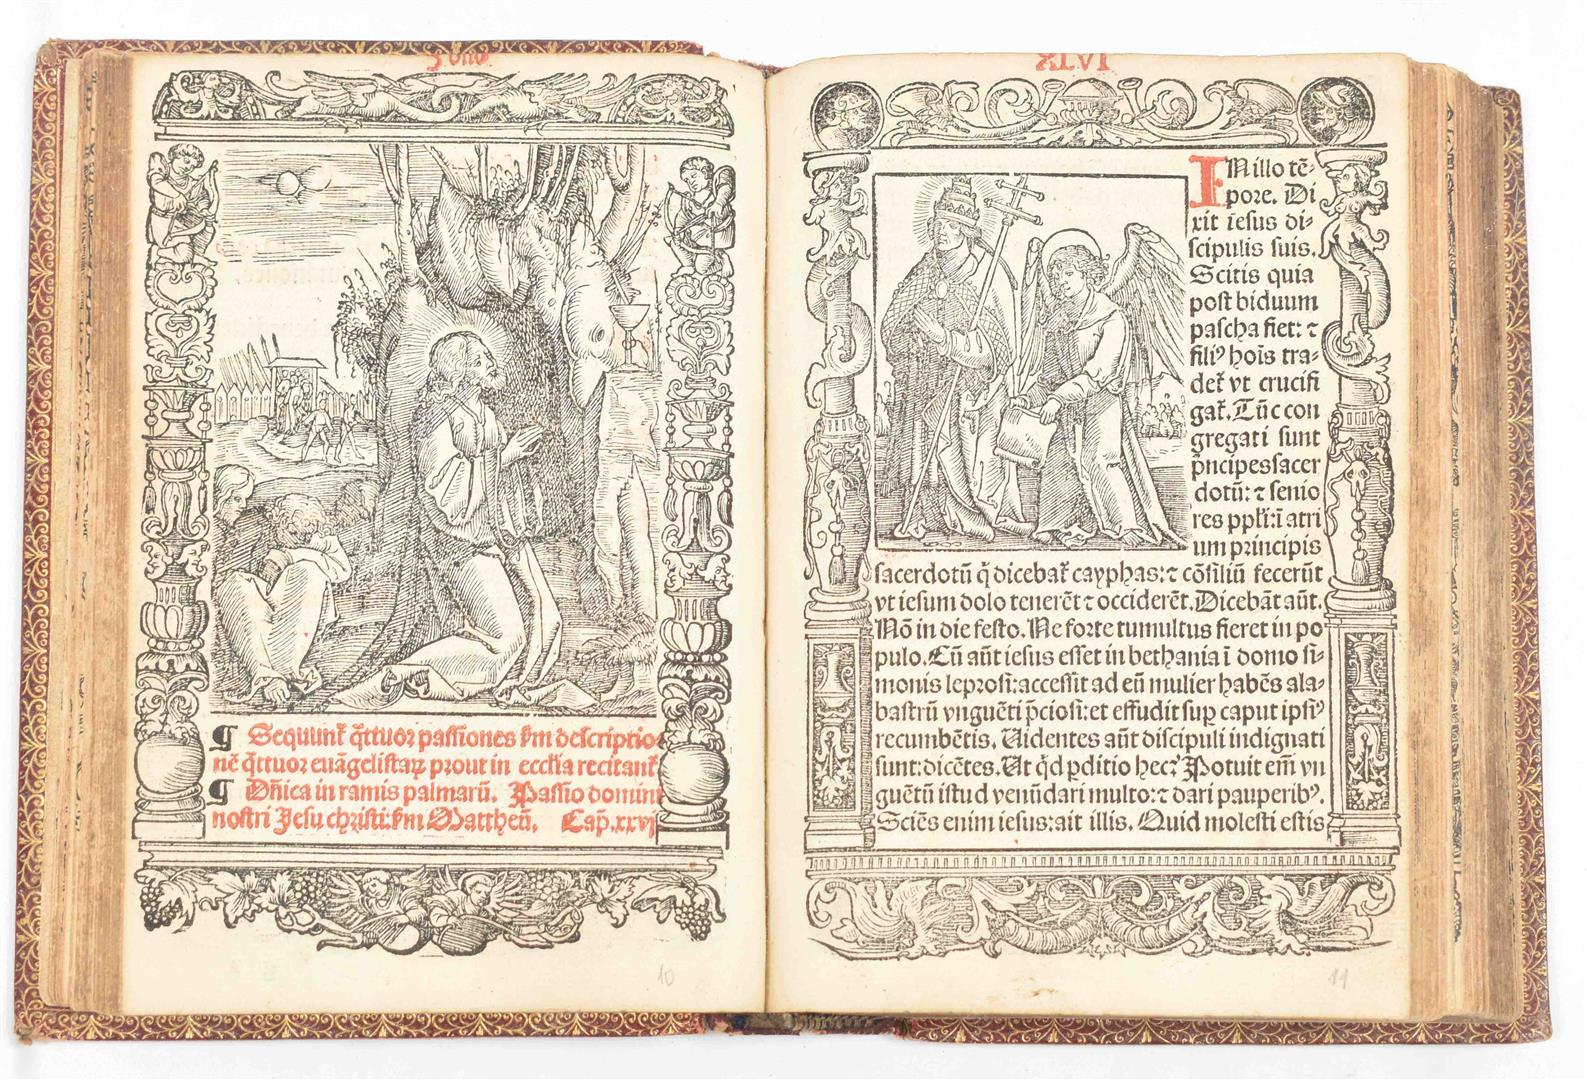 ¶ Sequunt᷑ q̄ttuor passiones ẜm descriptio
nē q̄ttuor euāgelistaꝝ prout in ecclīa recitant᷑
¶ Dn̄ica in ramis palmarū. Passio domini
nostri Jesu christi: ẜm Mattheū. Cap̄. xxvj
10
XLVI
IN illo tē-
pore. Di
xit iesus di-
scipulis suis.
Scitis quia
post biduum
pascha fiet: ⁊
filiꝰ hoīs tra-
det᷑ vt crucifi
gat᷑. Tūc con
gregati sunt
p̄ncipes sacer
dotū: ⁊ senio
res pp̄li: ī atri
um principis
sacerdotū q̄ dicebat᷑ cayphas: ⁊ cōsiliū fecerūt
vt iesum dolo tenerēt ⁊ occiderēt. Dicebāt aūt.
Nō in die festo. Ne forte tumultus fieret in po
pulo. Cū aūt iesus esset in bethania ī domo si-
monis leprosi: accessit ad eū mulier habēs ala-
bastrū vnguēti p̄ciosi: et effudit suꝑ caput ipsiꝰ
recumbētis. Uidentes aūt discipuli indignati
sunt: dicētes. Ut qd̄ ꝑditio hec? Potuit em̄ vn
guētū istud venūdari multo: ⁊ dari pauperibꝰ.
Sciēs enim iesus: ait illis. Quid molesti estis
11